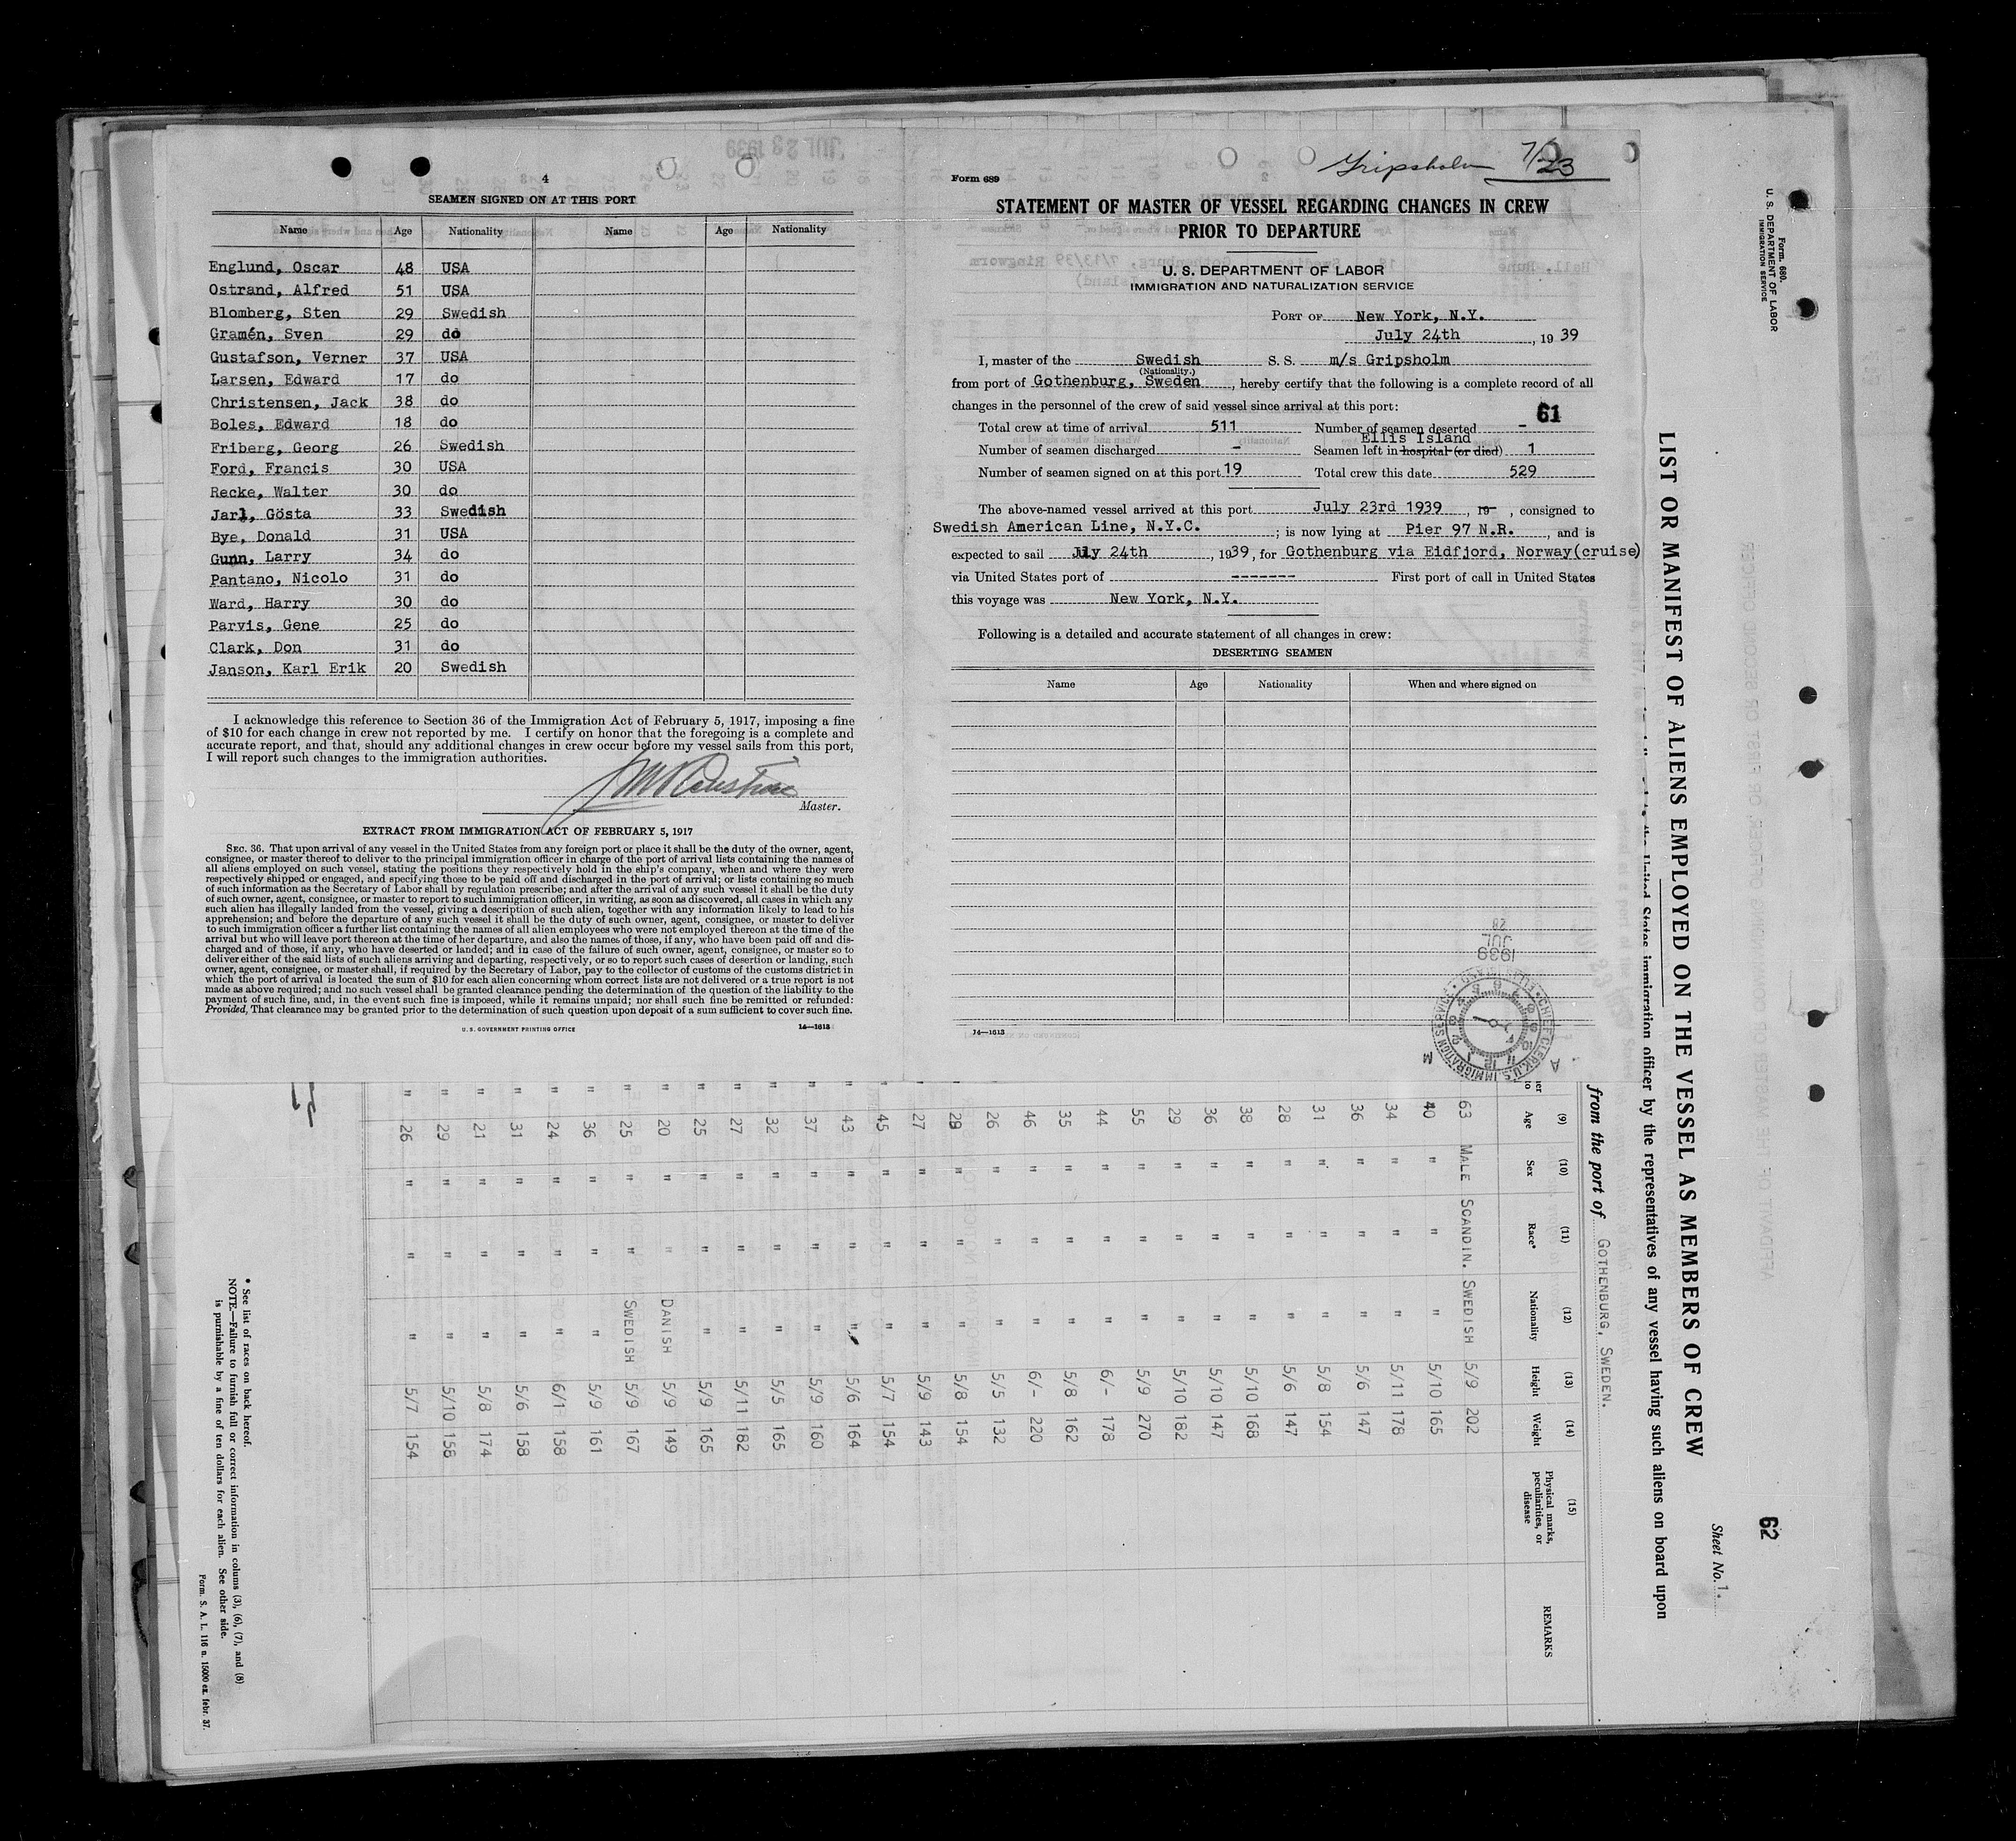 4
SEAMEN SIGNED ON AT THIS PORT
Name Age Nationality Name Age Nationality
Englund, Oscar 48 USA
Ostrand, Alfred 51 USA
Blomberg, Sten 29 Swedish
Gramén, Sven 29 do
Gustafson, Verner 37 USA
Larsen, Edward 17 do
Christensen, Jack 38 do
Boles, Edward 18 do
Friberg, Georg 26 Swedish
Ford, Francis 30 USA
Recke, Walter 30 do
Jarl, Gösta 33 Swedish
Bye, Donald 31 USA
Gunn, Larry 34 do
Pantano, Nicolo 31 do
Ward, Harry 30 do
Parvis, Gene 25 do
Clark, Don 31 do
Janson, Karl Erik 20 Swedish
I acknowledge this reference to Section 36 of the Immigration Act of February 5, 1917, imposing a fine
of $10 for each change in crew not reported by me. I certify on honor that the foregoing is a complete and
accurate report, and that, should any additional changes in crew occur before my vessel sails from this port,
I will report such changes to the immigration authorities.
Master.
EXTRACT FROM IMMIGRATION ACT OF FEBRUARY 5, 1917
SEC. 36. That upon arrival of any vessel in the United States from any foreign port or place it shall be the duty of the owner, agent,
consignee, or master thereof to deliver to the principal immigration officer in charge of the port of arrival lists containing the names of
all aliens employed on such vessel, stating the positions they respectively hold in the ship's company, when and where they were
respectively shipped or engaged, and specifying those to be paid off and discharged in the port of arrival; or lists containing so much
of such information as the Secretary of Labor shall by regulation prescribe; and after the arrival of any such vessel it shall be the duty
of such owner, agent, consignee, or master to report to such immigration officer, in writing, as soon as discovered, all cases in which any
such alien has illegally landed from the vessel, giving a description of such alien, together with any information likely to lead to his
apprehension; and before the departure of any such vessel it shall be the duty of such owner, agent, consignee, or master to deliver
to such immigration officer a further list containing the names of all alien employees who were not employed thereon at the time of the
arrival but who will leave port thereon at the time of her departure, and also the names of those, if any, who have been paid off and dis-
charged and of those, if any, who have deserted or landed; and in case of the failure of such owner, agent, consignee, or master so to
deliver either of the said lists of such aliens arriving and departing, respectively, or so to report such cases of desertion or landing, such
owner, agent, consignee, or master shall, if required by the Secretary of Labor, pay to the collector of customs of the customs district in
which the port of arrival is located the sum of $10 for each alien concerning whom correct lists are not delivered or a true report is not
made as above required; and no such vessel shall be granted clearance pending the determination of the question of the liability to the
payment of such fine, and, in the event such fine is imposed, while it remains unpaid; nor shall such fine be remitted or refunded:
Provided, That clearance may be granted prior to the determination of such question upon deposit of a sum sufficient to cover such fine.
U. S. GOVERNMENT PRINTING OFFICE 14—1613
Gripsholm 7/23
Form 689
STATEMENT OF MASTER OF VESSEL REGARDING CHANGES IN CREW
PRIOR TO DEPARTURE
U. S. DEPARTMENT OF LABOR
IMMIGRATION AND NATURALIZATION SERVICE
PORT OF New York, N.Y.
July 24th, 1939
I, master of the Swedish S. S. m/s Gripsholm
(Nationality.)
from port of Gothenburg, Sweden, hereby certify that the following is a complete record of all
changes in the personnel of the crew of said vessel since arrival at this port:
61
Total crew at time of arrival 511 Number of seamen deserted -
Ellis Island
Number of seamen discharged - Seamen left in hospital (or died) 1
Number of seamen signed on at this port 19 Total crew this date 529
The above-named vessel arrived at this port July 23rd 1939, 19-, consigned to
Swedish American Line, N.Y.C.; is now lying at Pier 97 N.R., and is
expected to sail July 24th, 1939, for Gothenburg via Eidfjord, Norway(cruise)
via United States port of ------- First port of call in United States
this voyage was New York, N.Y.
Following is a detailed and accurate statement of all changes in crew:
DESERTING SEAMEN
Name Age Nationality When and where signed on
14—1613
1939
JUL
CHIEF CLERK, U.S. IMMIGRATION SERVICE
A M
Form 680.
U. S. DEPARTMENT OF LABOR
IMMIGRATION SERVICE
62
Sheet No. 1.
LIST OR MANIFEST OF ALIENS EMPLOYED ON THE VESSEL AS MEMBERS OF CREW
United States immigration officer by the representatives of any vessel having such aliens on board upon
from the port of GOTHENBURG, SWEDEN.
(9) (10) (11) (12) (13) (14) (15)
Age Sex Race* Nationality Height Weight Physical marks, peculiarities, or disease REMARKS
63 MALE SCANDIN. SWEDISH 5/9 202
40 " " " 5/10 165
34 " " " 5/11 178
36 " " " 5/6 147
31 " " " 5/8 154
28 " " " 5/6 147
38 " " " 5/10 168
36 " " " 5/10 147
29 " " " 5/10 182
55 " " " 5/9 270
44 " " " 6/- 178
35 " " " 5/8 162
46 " " " 6/- 220
26 " " " 5/5 132
29 " " " 5/8 154
27 " " " 5/9 143
45 " " " 5/7 154
43 " " " 5/6 164
37 " " " 5/9 160
32 " " " 5/5 165
27 " " " 5/11 182
25 " " " 5/9 165
20 " " DANISH 5/9 149
25 " " SWEDISH 5/9 167
36 " " " 5/9 161
24 " " " 6/1 158
31 " " " 5/6 158
21 " " " 5/8 174
29 " " " 5/10 158
26 " " " 5/7 154
* See list of races on back hereof.
NOTE.—Failure to furnish full or correct information in colums (3), (6), (7), and (8)
is punishable by a fine of ten dollars for each alien. See other side.
Form. S. A. L. 116 n. 15000 ex. febr. 37.